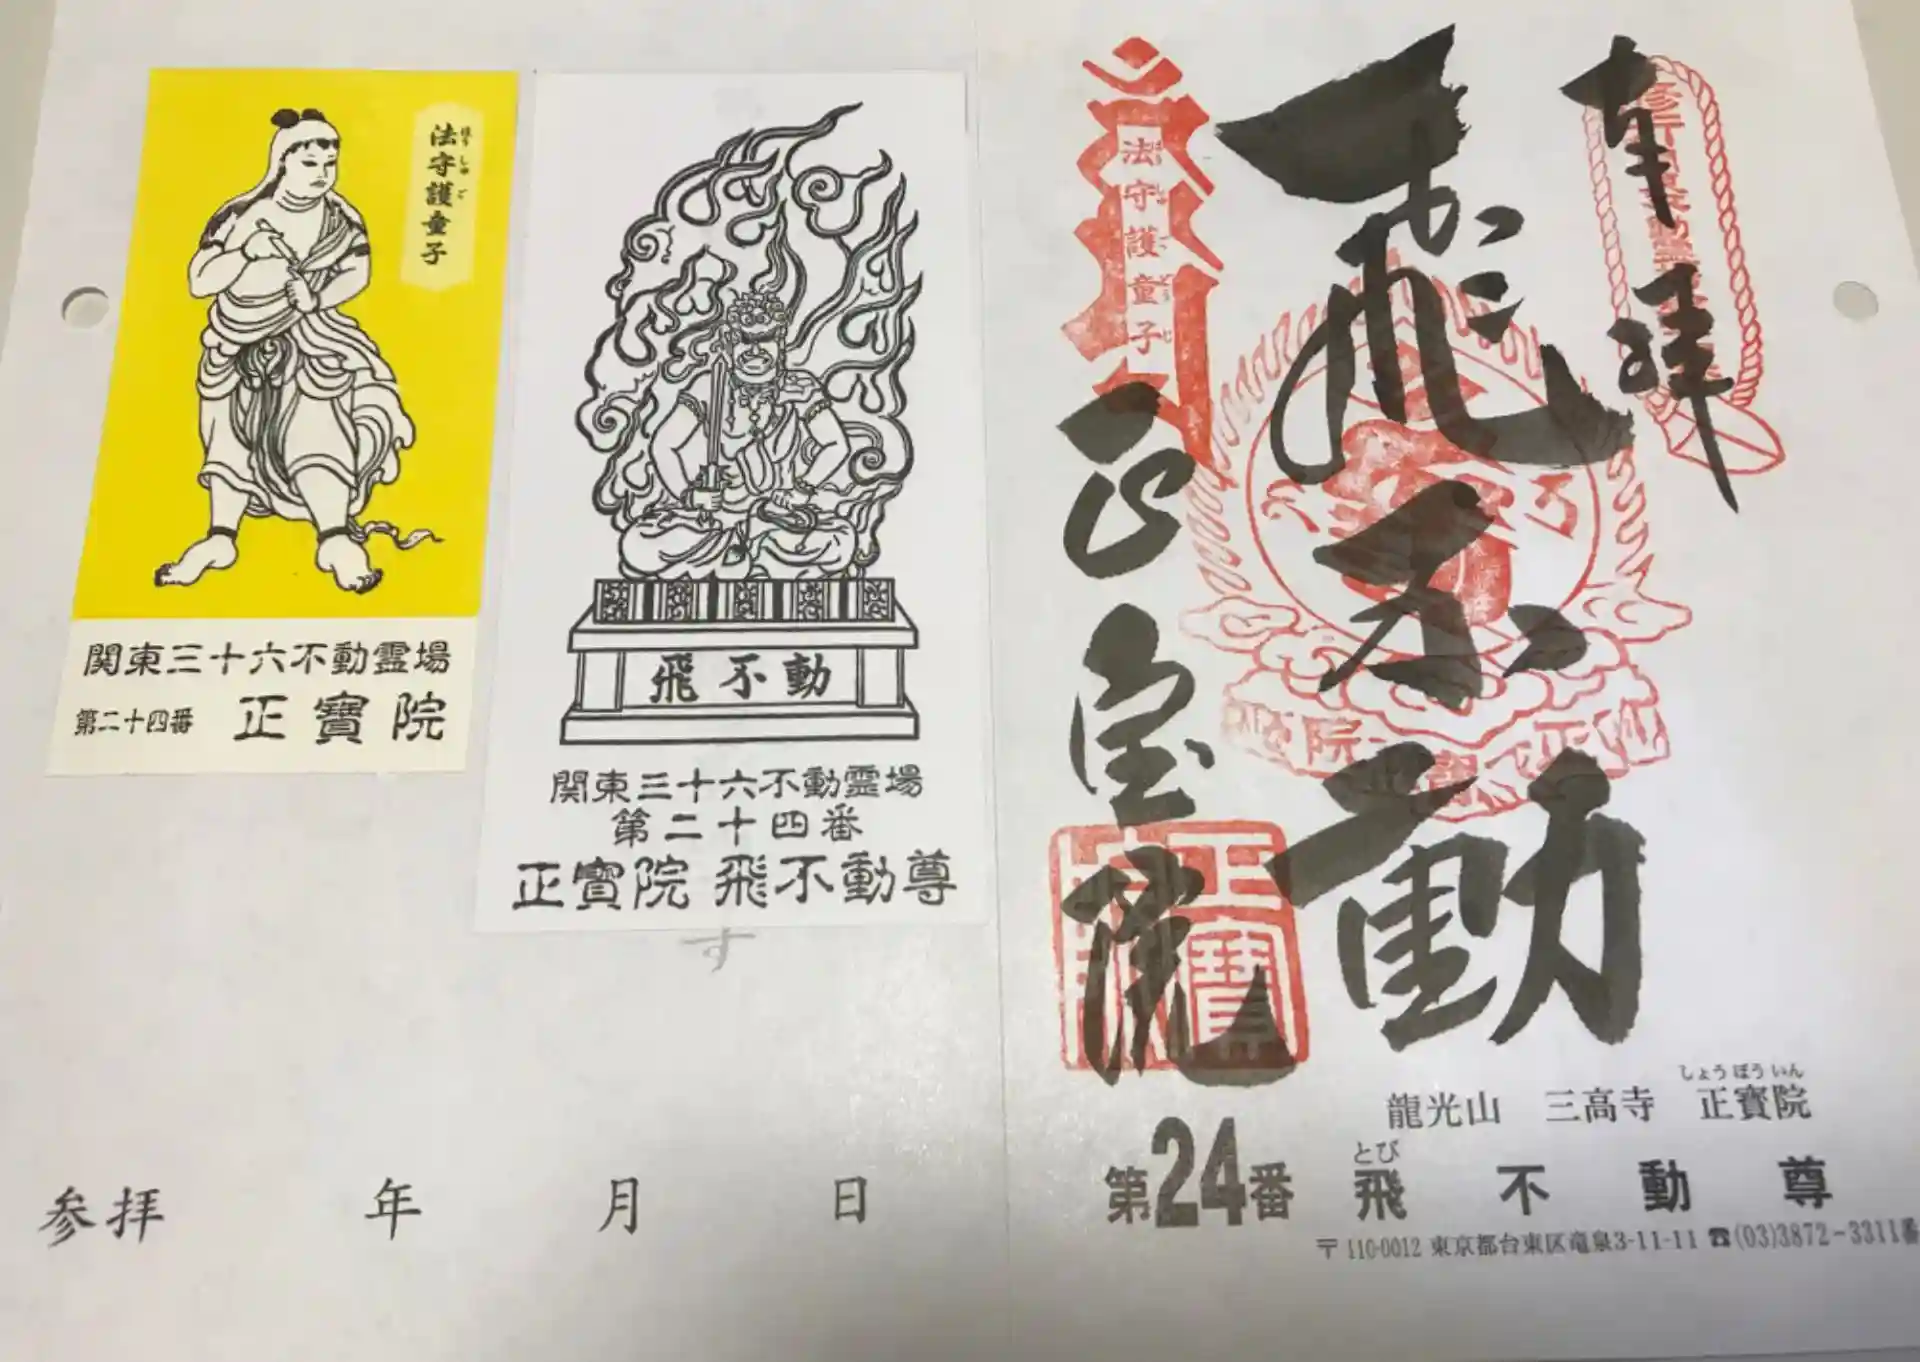 法守護童子
ほうしゅご
関東三十六不動霊場
第二十四番 正寶院
飛不動
関東三十六不動霊場
第二十四番
正寶院 飛不動尊
す
参拝 年 月 日
奉拝
飛不動
法守護童子
正宝院
正寶院
龍光山 三高寺 正寶院
しょうぼういん
第24番 飛不動尊
とび
〒110-0012 東京都台東区竜泉3-11-11 ☎(03)3872-3311番